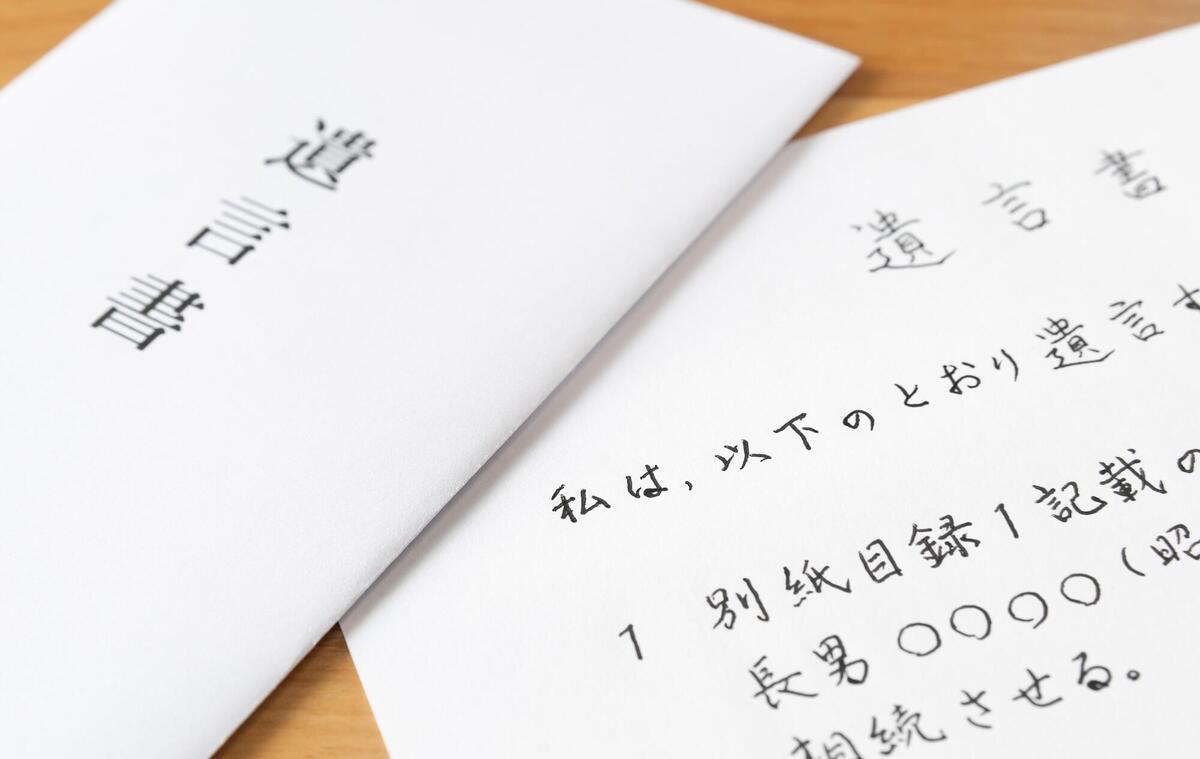 遺言書
遺言書
私は、以下のとおり遺言す
1 別紙目録1記載の
長男 〇〇〇〇（昭
相続させる。